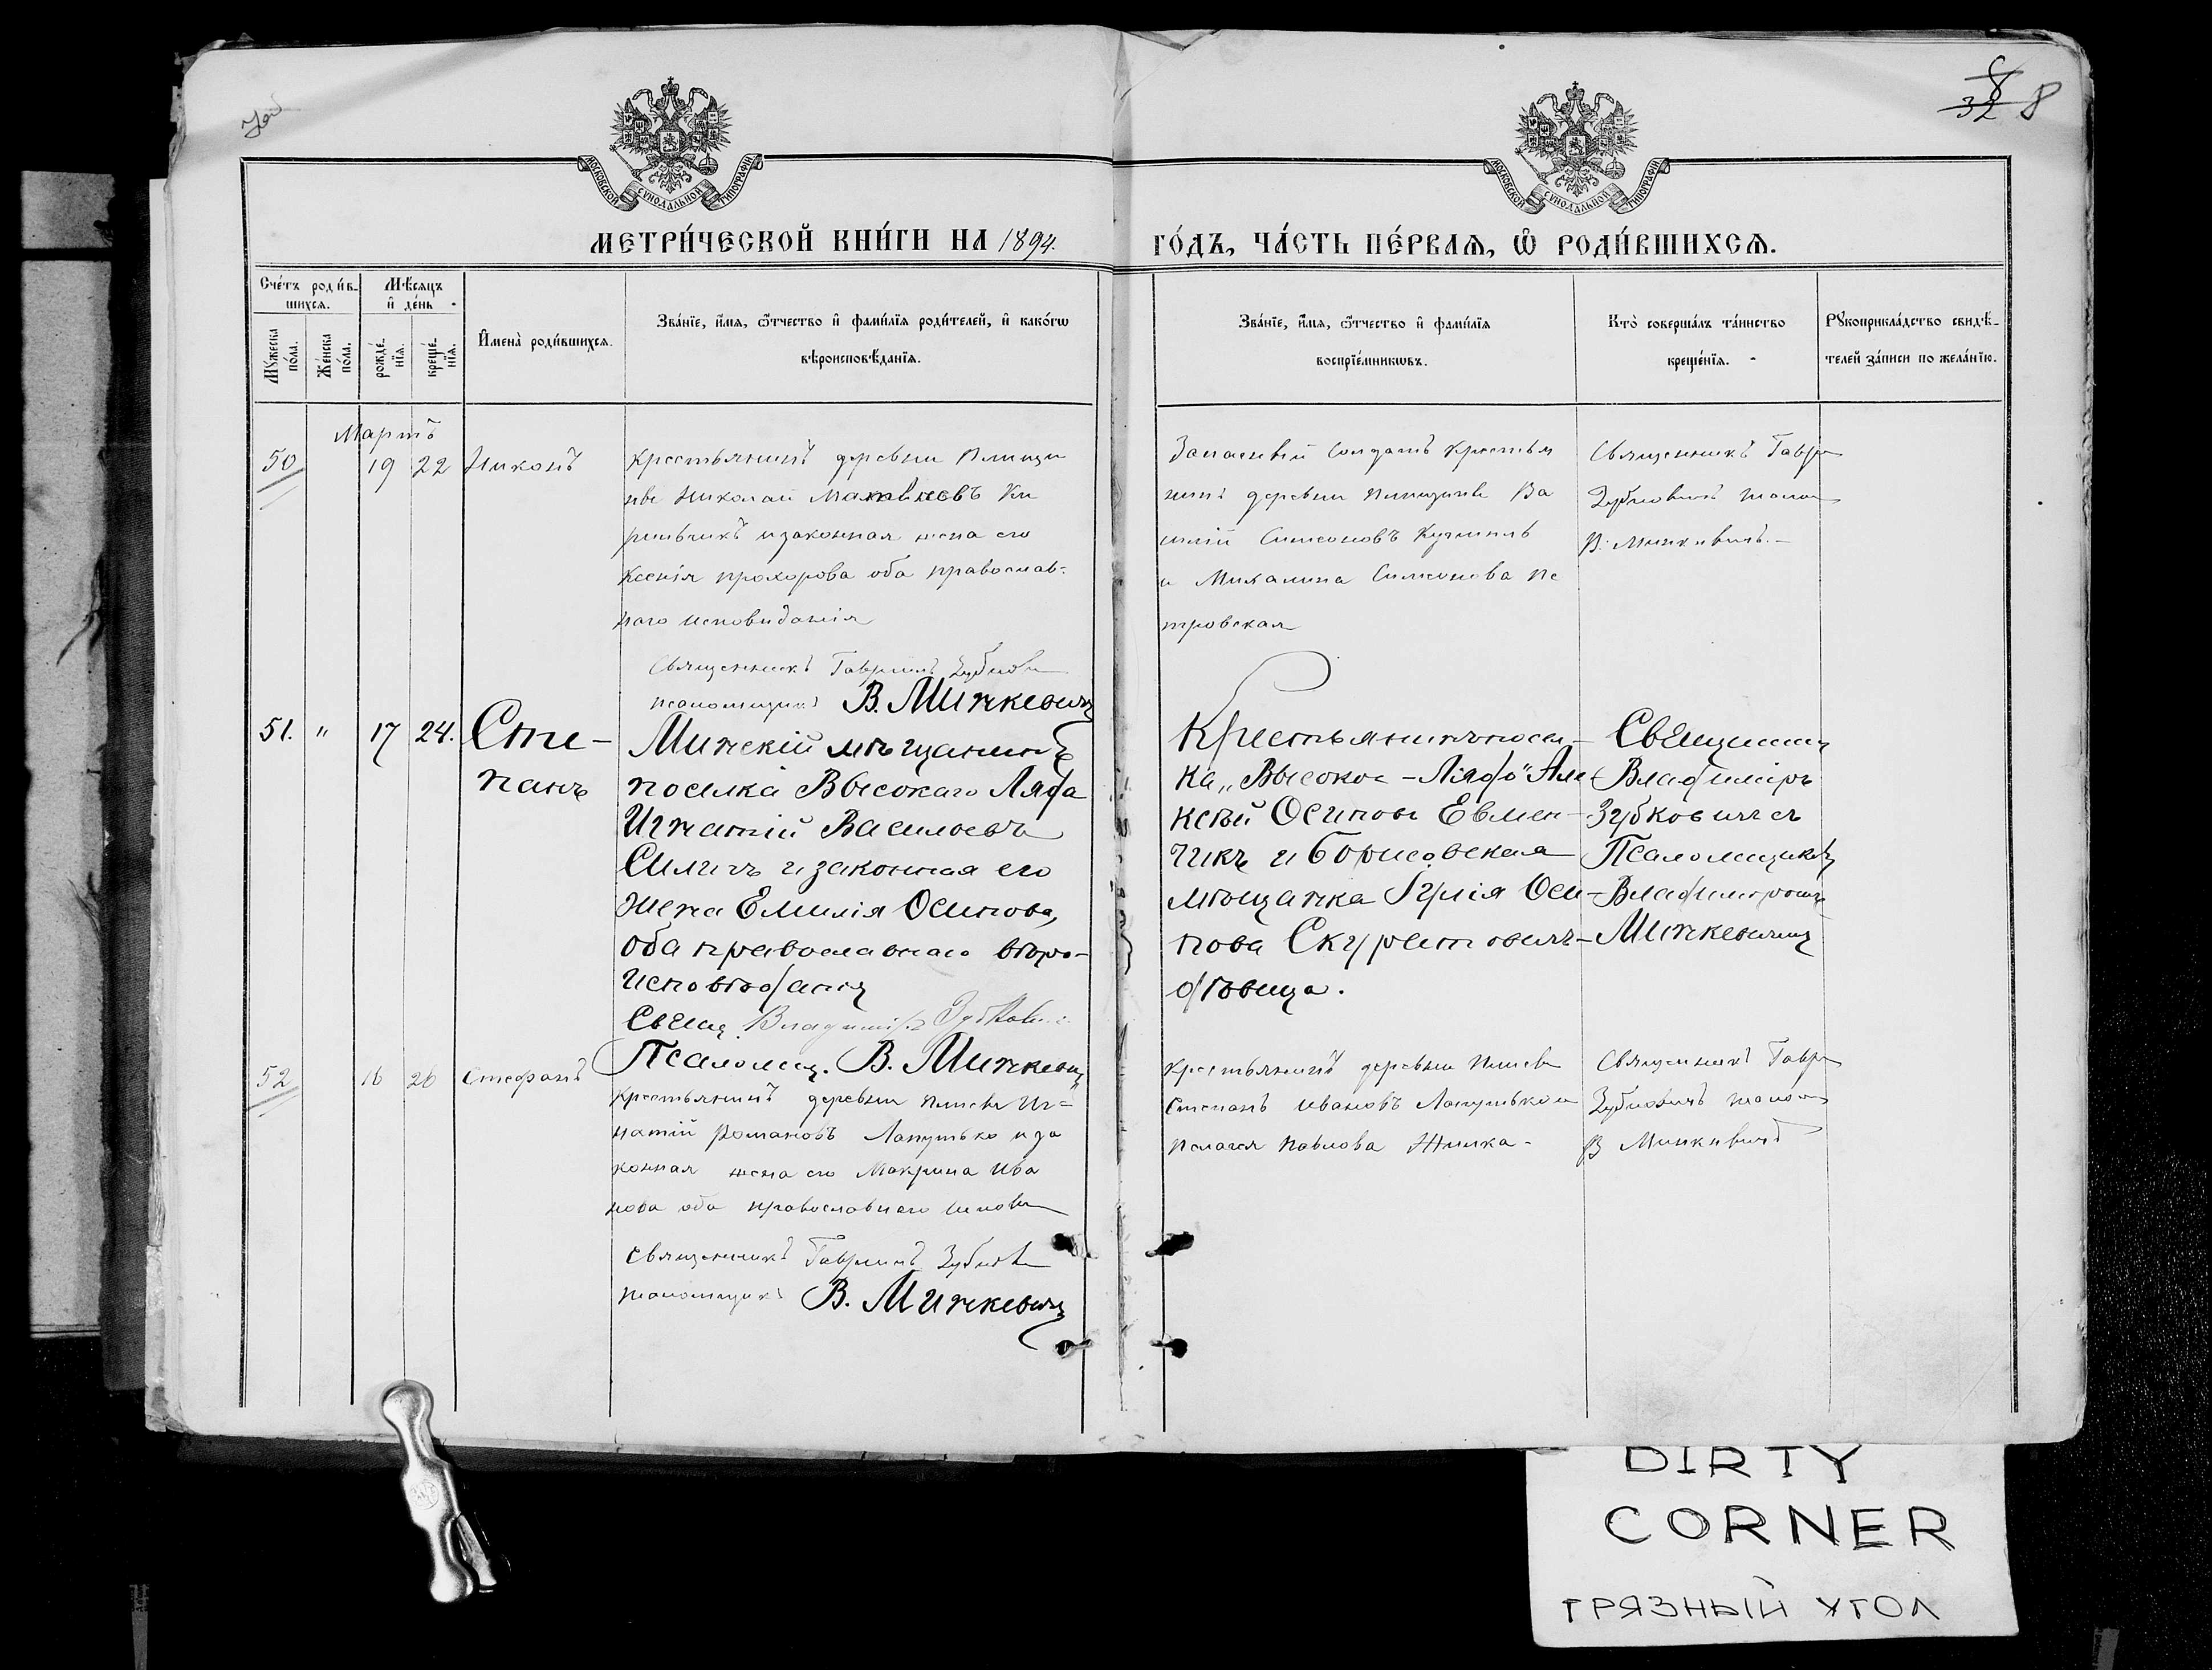 8
32 8
МОСКОВСКОЙ СѴНОДАЛЬНОЙ ТИПОГРАФІИ
МОСКОВСКОЙ СѴНОДАЛЬНОЙ ТИПОГРАФІИ
МЕТРИ́ЧЕСКОЙ КНИ́ГИ НА 1894.
ГО́ДЪ, ЧА́СТЬ ПЕ́РВАѦ, Ѿ РОДИ́ВШИХСѦ.
Сче́тъ роди́в-
шихсѧ.
Мѣ́сѧцъ
и҆ де́нь
Мꙋ́жеска по́ла.
Же́нска по́ла.
рожде́-нїѧ.
креще́-нїѧ.
И҆мена̀ роди́вшихсѧ.
Зва́нїе, и҆́мѧ, ѻ҆́тчество и҆ фами́лїѧ роди́телей, и҆ како́гѡ
вѣроисповѣ́данїѧ.
Зва́нїе, и҆́мѧ, ѻ҆́тчество и҆ фами́лїѧ
воспрїе́мникѡвъ.
Кто̀ соверша́лъ та́инство
креще́нїѧ.
Рꙋкоприкла́дство свидѣ́-
телей за́писи по жела́нїю.
Мартъ
50 19 22 Никонъ
Крестьянинъ деревни
Николай Матвѣевъ
и законная жена его
Ксенія Прохорова оба православ-
наго исповиданія
Священникъ Гавріилъ
Псаломщикъ В. Минкевичъ
Запасный Солдатъ Крестья
нинъ деревни Ва
силій Симеоновъ
и Михалина Симеонова Пе
тровская
Священникъ Гавр
Зубковичъ
В. Минкевичъ.
51. " 17 24. Сте-
панъ
Минскій мѣщанинъ
поселка Высокаго Ляда
Игнатій Васильевъ
Силичъ и законная его
жена Емилія Осипова,
оба православнаго вѣро-
исповѣданія
Свящ. Владиміръ Зубкович
Псаломщ. В. Минкевичъ
Крестьянинъ посел-
ка „Высокое-Лядо" Але
ксѣй Осиповъ Евмен-
чикъ и Борисовская
мѣщанка Юлія Оси-
пова Скуратович-
дѣвица.
Священникъ
Владиміръ
Зубковичъ съ
Псаломщикомъ
Владиміромъ
Минкевичемъ
52 16 26 Стефанъ
Крестьянинъ деревни Иг=
натій Романовъ Лапутько и за
конная жена его Макрина Ива
нова оба православнаго испов
Священникъ Гавріилъ
Псаломщикъ В. Минкевичъ
Крестьянинъ деревни
Степанъ Ивановъ Лапутько и
Пелагея Павлова Жилка-
Священникъ Гавр
Зубковичъ
В Минкевичъ
DIRTY
CORNER
ГРЯЗНЫЙ УГОЛ